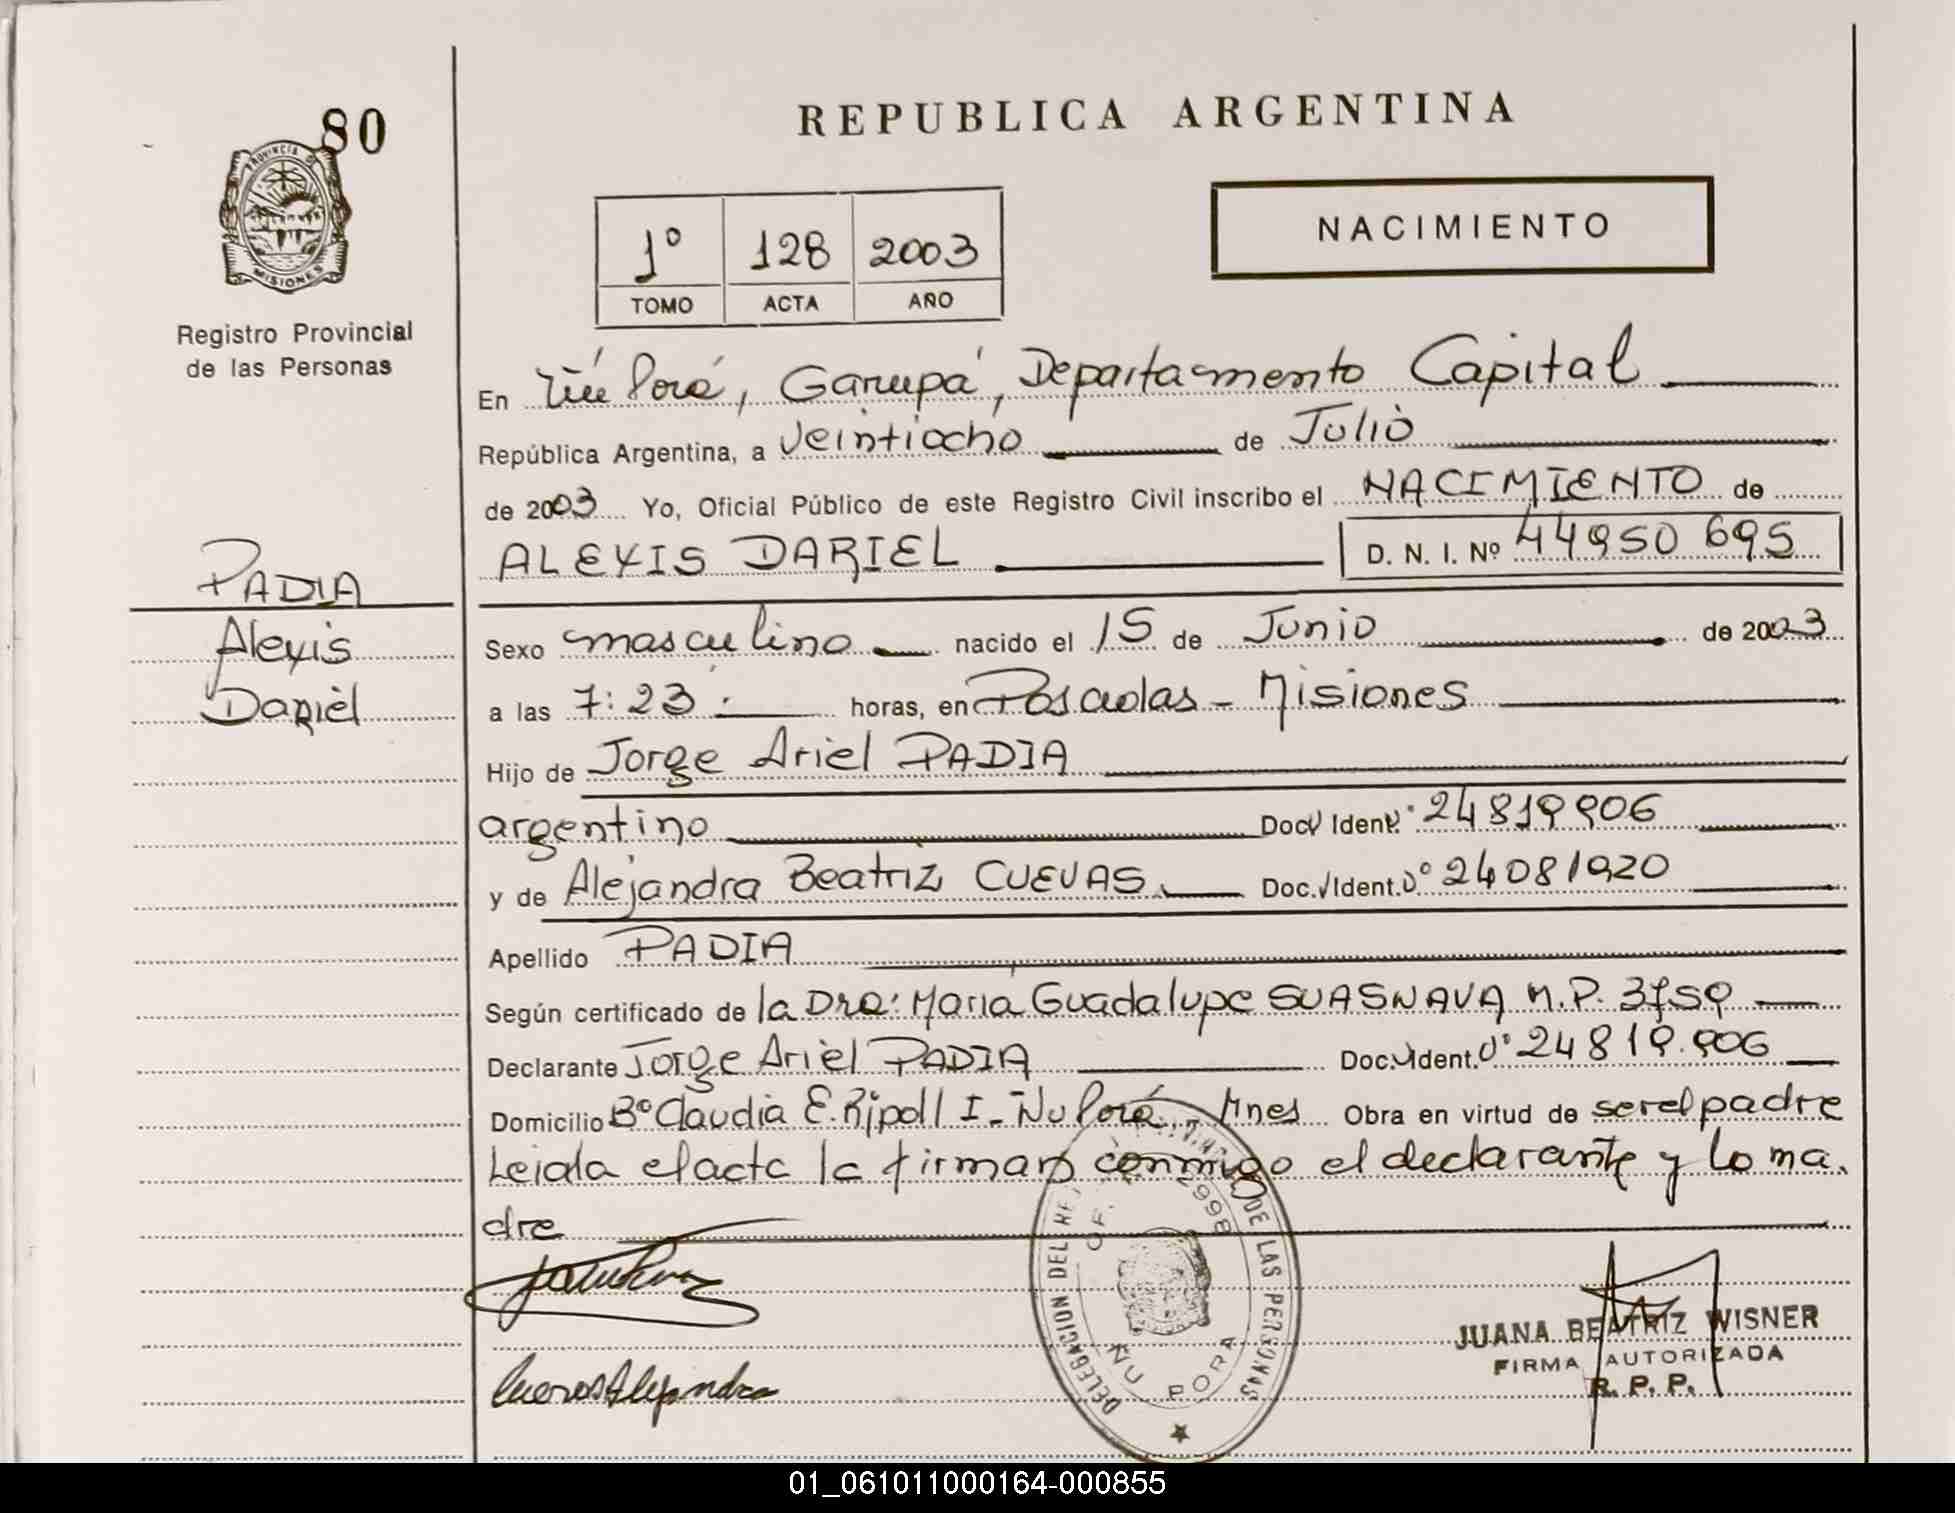 80
REPUBLICA ARGENTINA
PROVINCIA DE
MISIONES
1º 128 2003
TOMO ACTA AÑO
NACIMIENTO
Registro Provincial
de las Personas
En Ñu Porá, Garupá, Departamento Capital
República Argentina, a Veintiocho de Julio
de 2003 Yo, Oficial Público de este Registro Civil inscribo el NACIMIENTO de
ALEXIS DARIEL D. N. I. Nº 44950 695
PADIA
Alexis
Dariel
Sexo masculino nacido el 15 de Junio de 2003
a las 7:23 horas, en Posadas - Misiones
Hijo de Jorge Ariel PADIA
argentino Doc. Ident. 24819906
y de Alejandra Beatriz CUEVAS Doc. Ident. 24081920
Apellido PADIA
Según certificado de la Dra: Maria Guadalupe SUASNAVA M.P. 3759
Declarante Jorge Ariel PADIA Doc. Ident. 24819.906
Domicilio Bº Claudia E. Ripoll I - Ñu Porá - Mnes Obra en virtud de ser el padre
Leida el acta la firman conmigo el declarante y la ma.
dre
DELEGACION DEL DE LAS PERSONAS
OF. 2998
ÑU PORA
Cuevas Alejandra
JUANA BEATRIZ WISNER
FIRMA AUTORIZADA
R. P. P.
01_061011000164-000855